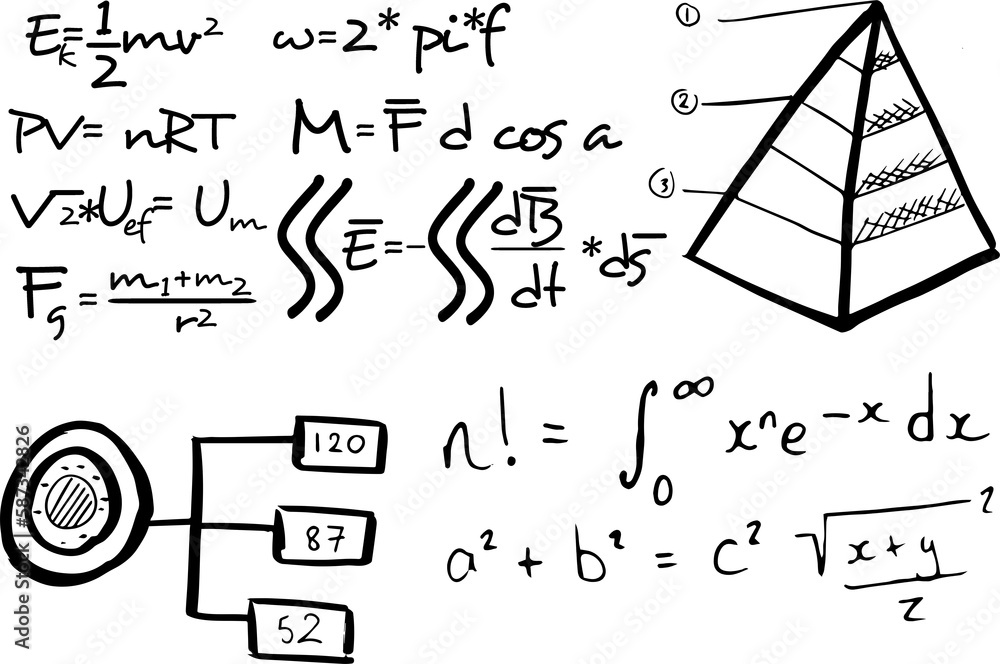 E_k = 1/2 mv²
ω = 2 * pi * f
PV = nRT
M = F̅ d cos a
√2 * U_ef = U_m
E̅ = - dB̅/dt * ds̅
F_g = m₁+m₂ / r²
①
②
③
120
87
52
n! = ∫₀^∞ xⁿe⁻ˣ dx
a² + b² = c²
√(x+y / 2) ²
Adobe Stock | #587342826
Adobe Stock